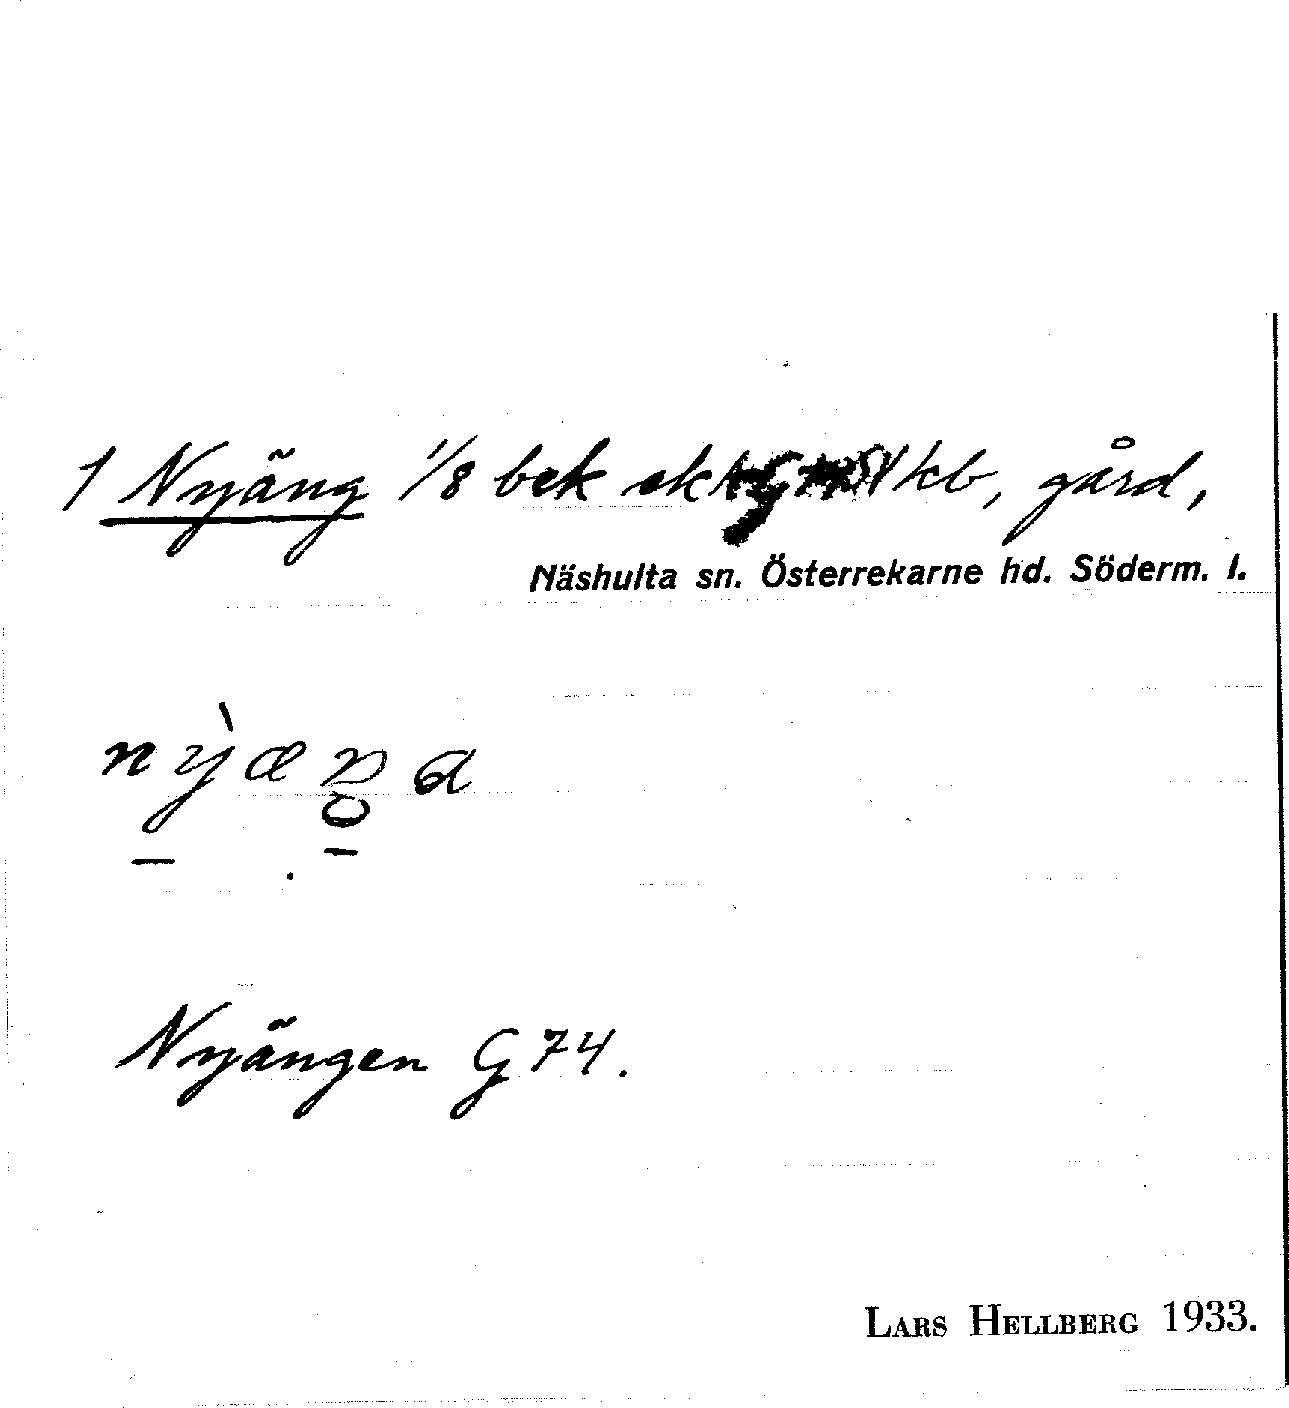 1 Nyäng 1/8 bek sk kb, gård,
Näshulta sn. Österrekarne hd. Söderm. l.
nỳæŋa
Nyängen G 74.
LARS HELLBERG 1933.